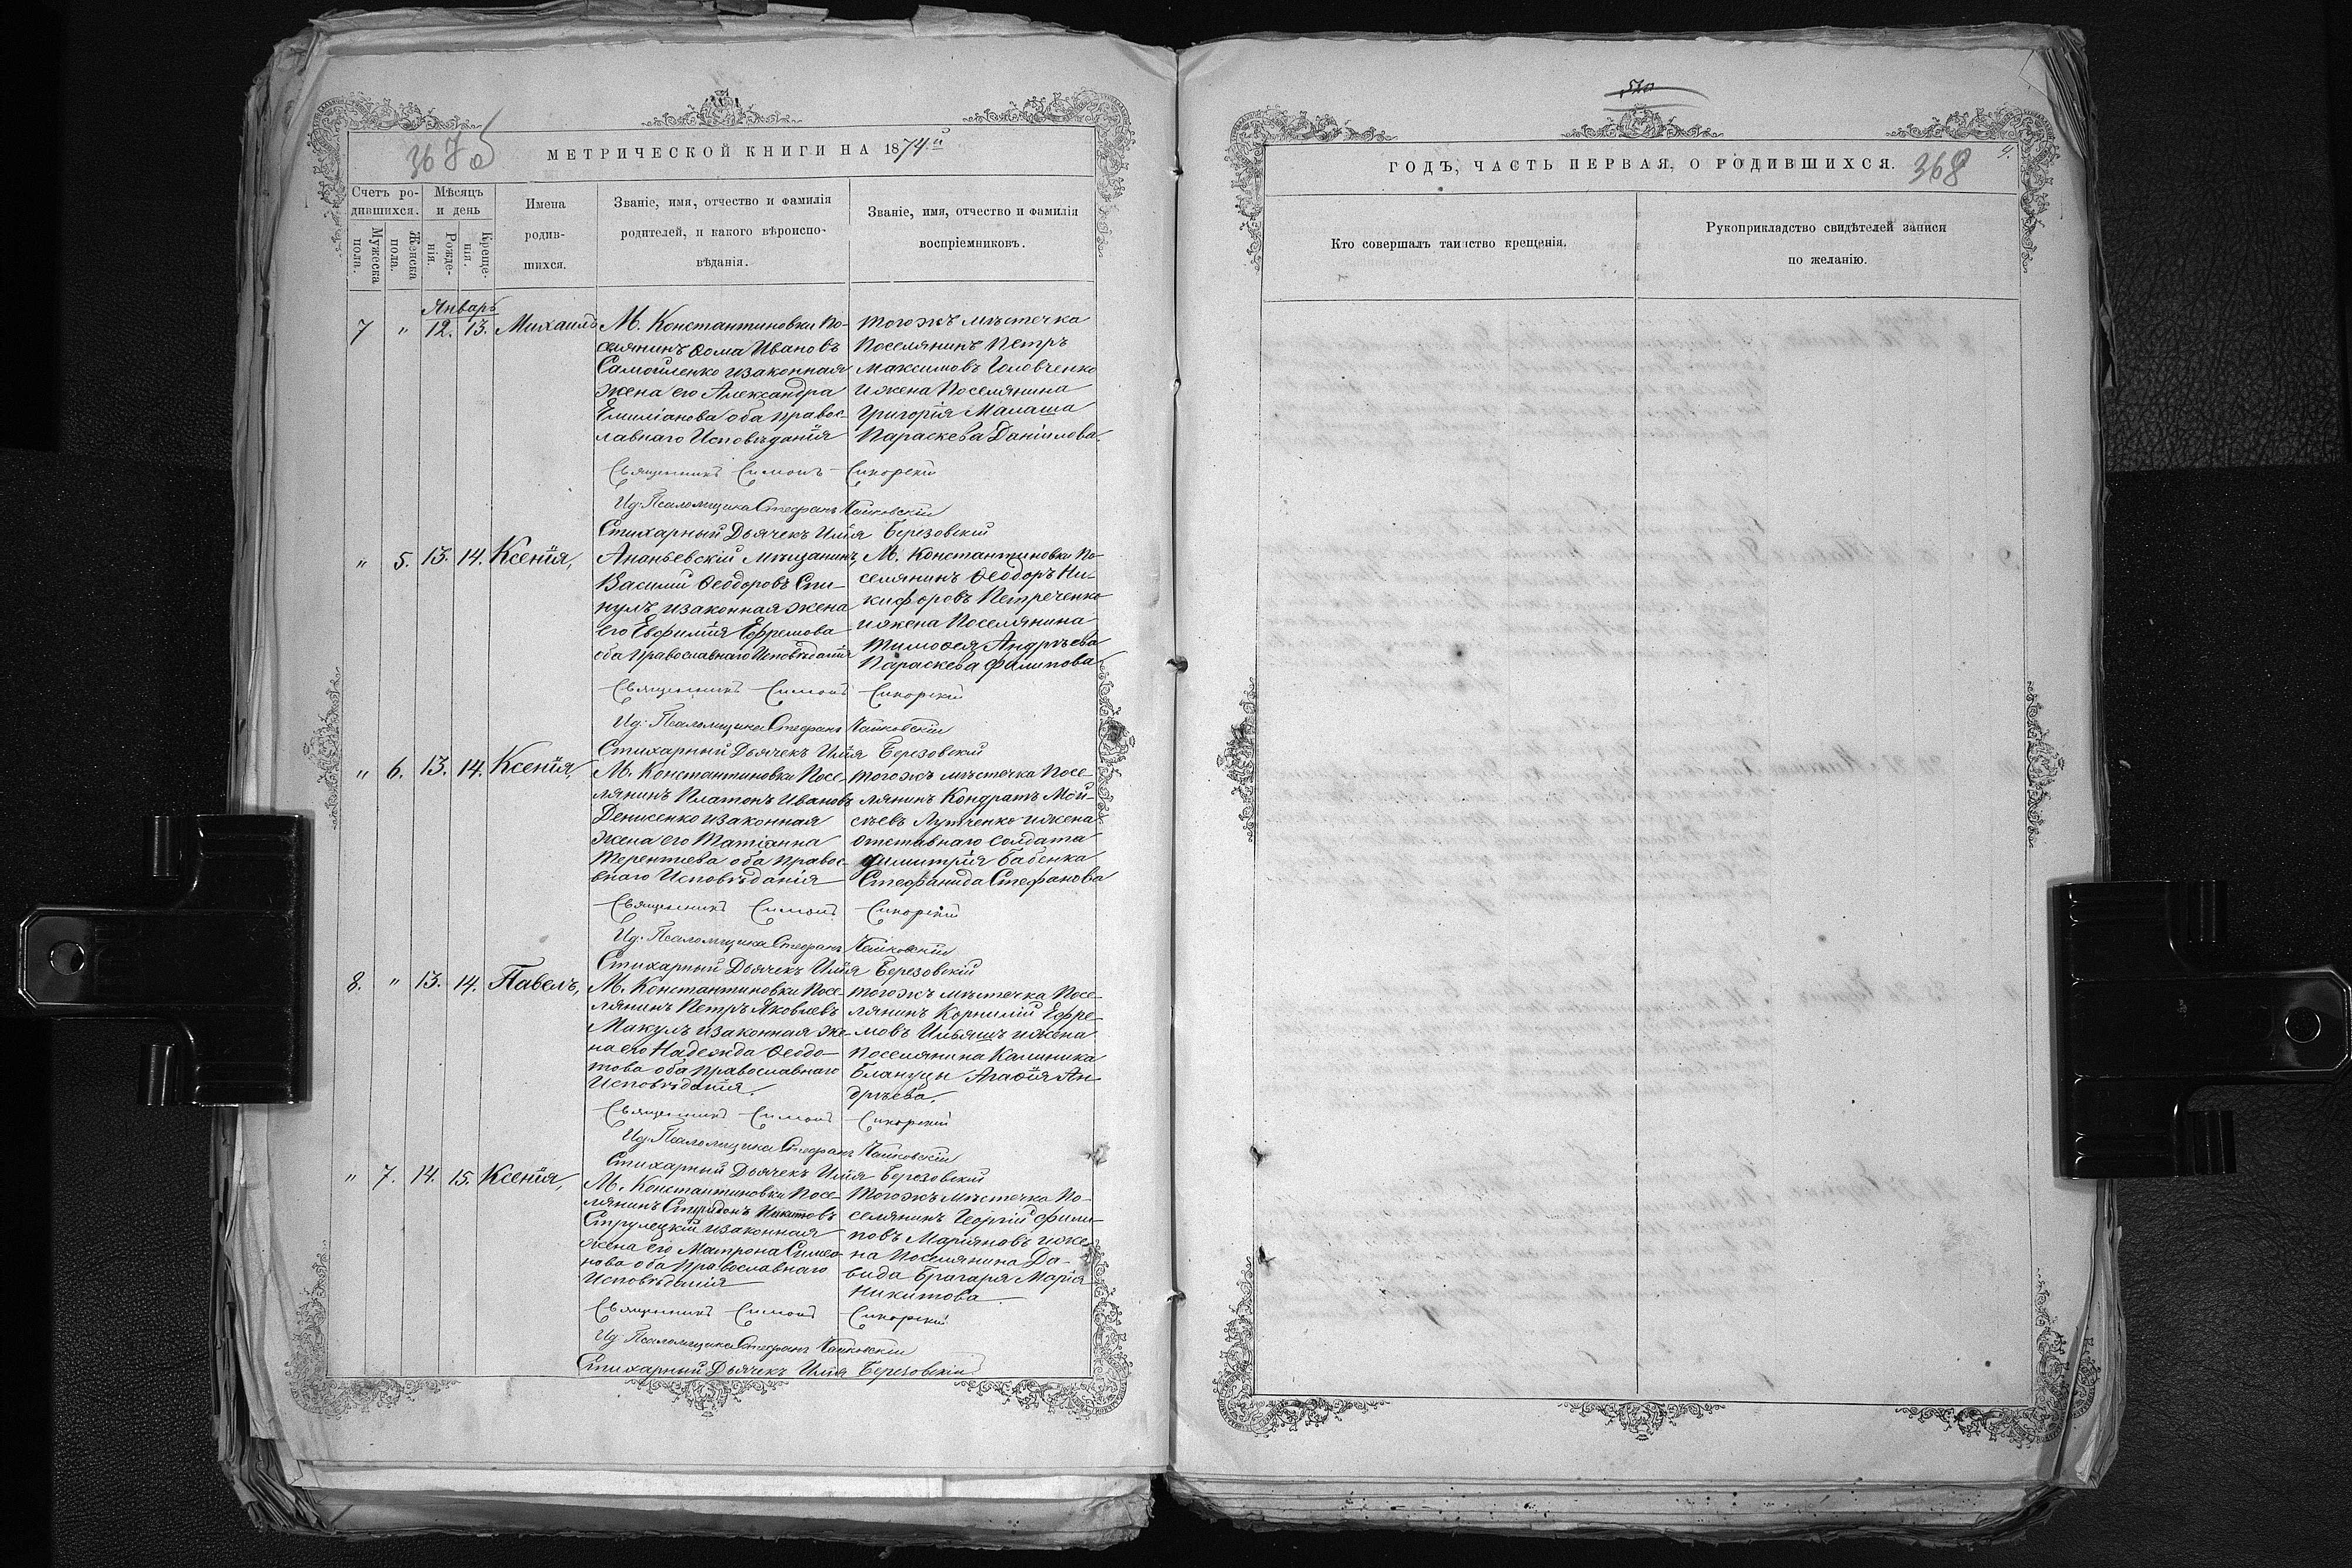 367об
МЕТРИЧЕСКОЙ КНИГИ НА 1874й
Счетъ ро-
дившихся.
Мужеска
пола.
Женска
пола.
Мѣсяцъ
и день
Рожде-
нія.
Креще-
нія.
Имена
родив-
шихся.
Званіе, имя, отчество и фамилія
родителей, и какого вѣроиспо-
вѣданія.
Званіе, имя, отчество и фамилія
воспріемниковъ.
Январь
7 " 12. 13. Михаилъ
М. Константиновки по-
селянинъ Ѳома Ивановъ
Самойленко и законная
жена его Александра
Емиліанова оба правос-
лавнаго Исповѣданія
тогожъ мѣстечка
Поселянинъ Петръ
Максимовъ Головченко
и жена Поселянина
Григорія Малаша
Параскева Даніилова.
Священникъ Симонъ Сикорскій
Ид: Псаломщика Стефанъ Чайковскій
Стихарный Дьячекъ Илія Березовскій
" 5. 13. 14. Ксенія,
Ананьевскій Мѣщанинъ
Василий Ѳеодоровъ Спи-
нулъ и законная жена
его Евфимія Ефремова
оба православнаго Исповѣданія
М. Константиновки по-
селянинъ Ѳеодоръ Ни-
кифоровъ Петреченко
и жена Поселянина
Тимофея Андрѣева
Параскева Филипова
Священникъ Симонъ Сикорскій
Ид: Псаломщика Стефанъ Чайковскій
Стихарный Дьячекъ Илія Березовскій
" 6. 13. 14. Ксенія,
М. Константиновки Посе-
лянинъ Платонъ Ивановъ
Денисенко и законная
жена его Татіанна
Терентьева оба правос-
внаго Исповѣданія
тогожъ мѣстечка Посе-
лянинъ Кондратъ Мой-
сѣевъ Лутченко и жена
отставнаго солдата
Димитрія Бабенка
Стефанида Стефанова
Священникъ Симонъ Сикорскій
Ид: Псаломщика Стефанъ Чайковскій
Стихарный Дьячекъ Илія Березовскій
8. " 13. 14. Павелъ,
М. Константиновки Посе-
лянинъ Петръ Яковлевъ
Макулъ и законная же-
на его Надежда Ѳеодо-
това оба православнаго
Исповѣданія.
тогожъ мѣстечка Посе-
лянинъ Корнилій Ефре-
мовъ Ильяшъ и жена
поселянина Калиника
Блануцы Агафія Ан-
дрѣева.
Священникъ Симонъ Сикорскій
Ид: Псаломщика Стефанъ Чайковскій
Стихарный Дьячекъ Илія Березовскій
" 7. 14. 15. Ксенія,
М. Константиновки Посе-
лянинъ Спиридонъ Никитовъ
Струлецкій и законная
жена его Матрона Симео-
нова оба православнаго
Исповѣданія
Тогожъ мѣстечка По-
селянинъ Георгій Фили-
повъ Маріяновъ и же-
на Поселянина Да-
вида Брагаря Марія
Никитова
Священникъ Симонъ Сикорскій
Ид: Псаломщика Стефанъ Чайковскій
Стихарный Дьячекъ Илія Березовскій
ГОДЪ, ЧАСТЬ ПЕРВАЯ, О РОДИВШИХСЯ.
368
4.
Кто совершалъ таинство крещенія.
Рукоприкладство свидѣтелей записи
по желанію.